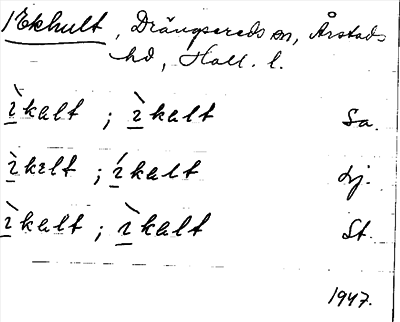 1 Ekhult, Drängsereds sn, Årstads
hd, Hall. l.
ɩ̀kalt ; ɩ̀kalt Sa.
ɩ̀kɛlt ; ɩ́kalt
ɩ̀kalt ; ɩ̀kalt St.
1947.